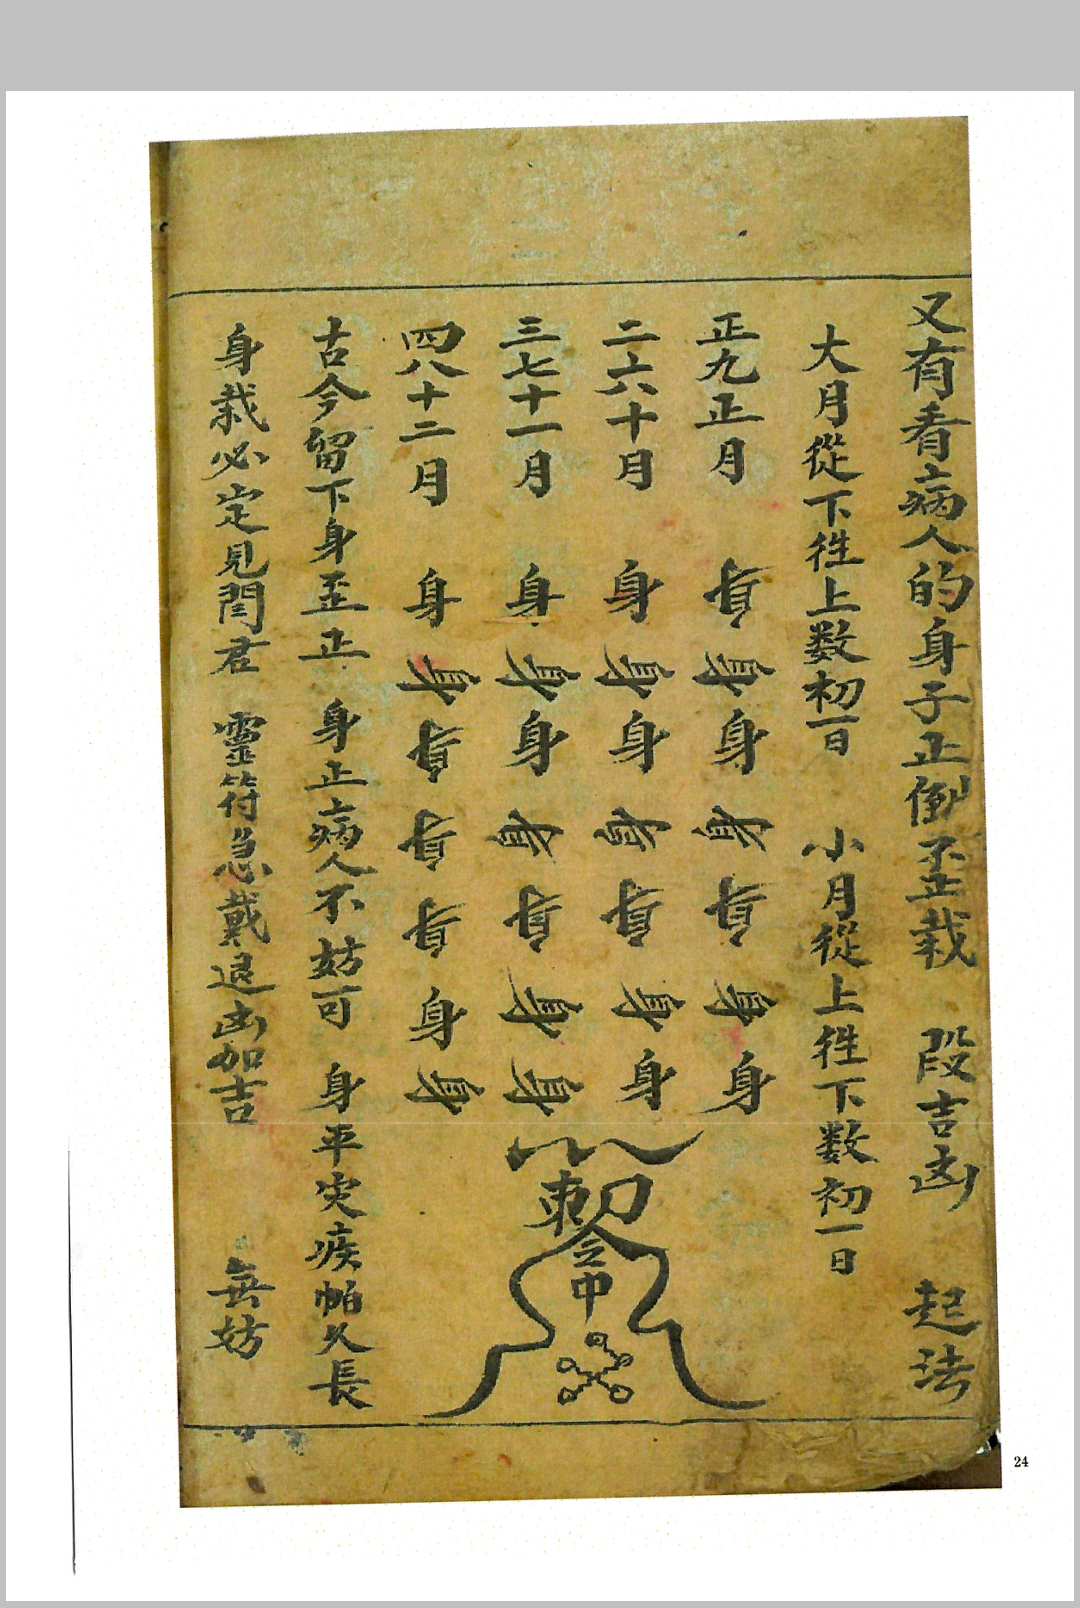 又有看病人的身子正倒歪栽 段吉凶 起法
大月從下徃上数初一日 小月從上徃下数初一日
正九正月 身身身身身身身
二六十月 身身身身身身身
三七十一月 身身身身身身身
四八十二月 身身身身身身身
勅令
古今留下身歪正 身正病人不妨可 身平灾疾帕久長
身栽必定見閻君 靈符急戴退凶加吉 無妨
24